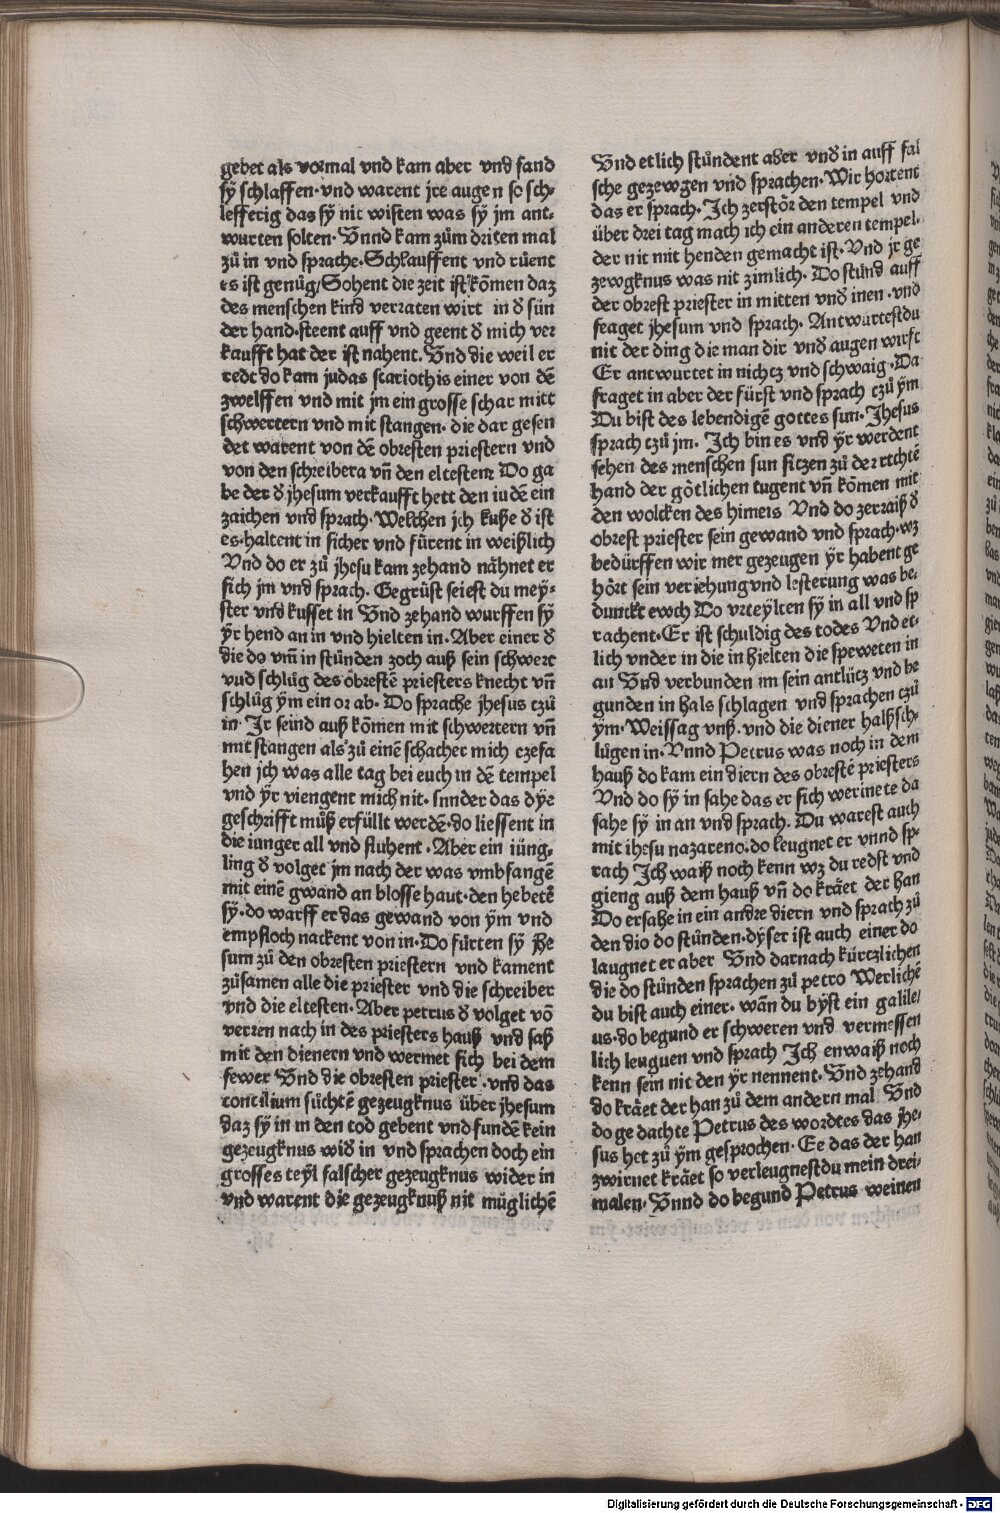 gebet als vormal vnd kam aber vnd fand
sÿ schlaffen· vnd warent jre augen so sch⸗
lefferig das sÿ nit wisten was sÿ jm ant⸗
wurten solten· Vnnd kam zům driten mal
zů in vnd sprache· Schlauffent vnd růent
es ist genůg/ Sohent die zeit ist kõmen daz
des menschen kind verraten wirt in d̕ sün
der hand· steent auff vnd geent d̕ mich ver
kaufft hat der ist nahent. Vnd die weil er
redt do kam judas scariothis einer von dẽ
zwelffen vnd mit jm ein grosse schar mitt
schwertern vnd mit stangen· die dar gesen
det warent von dẽ obresten priestern vnd
von den schreibera vñ den eltesten Do ga
be der d̕ jhesum verkaufft hett den iudẽ ein
zaichen vnd sprach· Welchen jch kuße d̕ ist
es· haltent in sicher vnd fůrent in weißlich
Vnd do er zů jhesu kam zehand nåhnet er
sich jm vnd sprach. Gegrüst seiest du mey⸗
ster vnd kusset in Vnd zehand wurffen sÿ
ÿr hend an in vnd hielten in· Aber einer d̕
die do vm̃ in stůnden zoch auß sein schwert
vnd schlůg des obrestẽ priesters knecht vñ
schlůg ÿm ein or ab· Do sprache jhesus czů
in· Jr seind auß kõmen mit schwertern vñ
mit stangen als zů einẽ schacher mich czefa
hen jch was alle tag bei euch in dẽ tempel
vnd ÿr viengent mich nit· sunder das dÿe
geschrifft můß erfüllt werdẽ· do liessent in
die iunger all vnd fluhent · Aber ein iüng⸗
ling d̕ volget jm nach der was vmbfangẽ
mit einẽ gwand an blosse haut· den hebetẽ
sÿ· do warff er das gewand von ÿm vnd
empfloch nackent von in· Do fůrten sÿ jhe
sum zů den obresten priestern vnd kament
zůsamen alle die priester vnd die schreiber
vnd die eltesten· Aber petrus d̕ volget võ
verren nach in des priesters hauß vnd saß
mit den dienern vnd wermet sich bei dem
fewer Vnd die obresten priester · vnd das
concilium sůchtẽ gezeugknus über jhesum
daz sÿ in in den tod gebent vnd fundẽ kein
gezeugknus wid̕ in vnd sprachen doch ein
grosses teyl falscher gezeugknus wider in
vnd warent die gezeugknuß nit müglichẽ
Vnd etlich stůndent aber vnd̕ in auff fal
sche gezewgen vnd sprachen· Wir hortent
das er sprach· Jch zerstör den tempel vnd
über drei tag mach ich ein anderen tempel·
der nit mit henden gemacht ist· Vnd jr ge
zewgknus was nit zimlich· Do stůnd auff
der obrest priester in mitten vnd̕ inen · vnd
fraget jhesum vnd sprach· Antwurtestdu
nit der ding die man dir vnd̕ augen wirft
Er antwurtet in nichtz vnd schwaig · Da
fraget in aber der fürst vnd sprach czů ÿm
Du bist des lebendigẽ gottes sun· Jhesus
sprach czů jm· Ich bin es vnd ÿr werdent
sehen des menschen sun sitzen zů der rechtẽ
hand der götlichen tugent vñ kõmen mit
den wolcken des himels Vnd do zerraiß d̕
obrest priester sein gewand vnd sprach· wz
bedürffen wir mer gezeugen ÿr habent ge
hört sein veriehung vnd lesterung was be⸗
dunckt ewch Do vrteylten sÿ in all vnd sp
rachent· Er ist schuldig des todes Vnd et⸗
lich vnder in die in hielten die speweten in
an Vnd verbunden im sein antlütz vnd be
gunden in hals schlagen vnd sprachen czů
ÿm· Weissag vnß· vnd die diener halßsch⸗
lůgen in· Vnnd Petrus was noch in dem
hauß do kam ein diern des obrestẽ priesters
Vnd do sÿ in sahe das er sich werinete da
sahe sÿ in an vnd sprach. Du warest auch
mit ihesu nazareno· do leugnet er vnnd sp⸗
rach Jch waiß noch kenn wz du redst vnd
gieng auß dem hauß vñ do kräet der han
Do ersahe in ein andre diern vnd sprach zů
den dio do stůnden· dÿser ist auch einer do
laugnet er aber Vnd darnach kürczlichen
die do stůnden sprachen zů petro Werlichẽ
du bist auch einer· wãn du byst ein galile/
us· do begund er schweren vnd vermessen
lich leuguen vnd sprach Jch enwaiß noch
kenn sein nit den ÿr nennent· Vnd zehand
do kräet der han zů dem andern mal Vnd
do ge dachte Petrus des wordtes das jhe⸗
sus het zů ÿm gesprochen· Ee das der han
zwirnet kräet so verleugnestdu mein drei⸗
malen· Vnnd do begund Petrus weinen
Digitalisierung gefördert durch die Deutsche Forschungsgemeinschaft - DFG